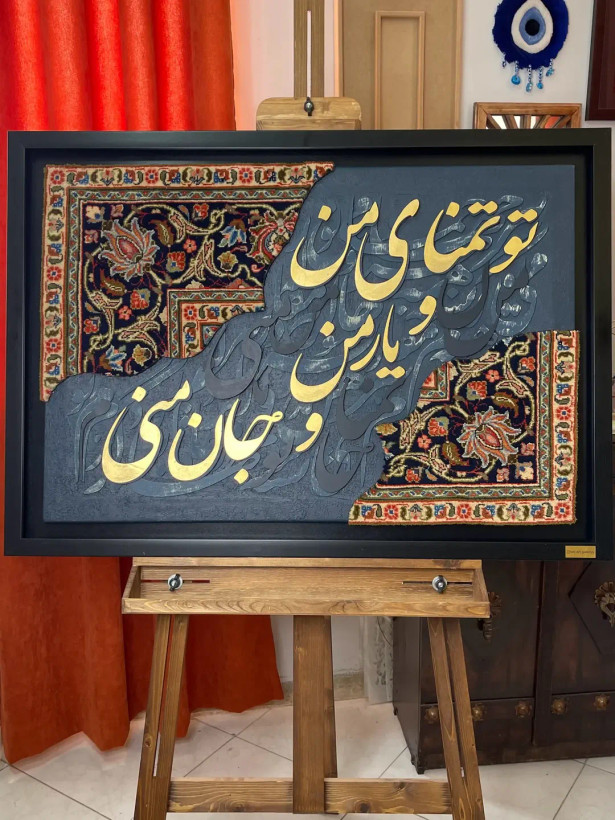 تو تمنای من
و
یار من
و
جان منی